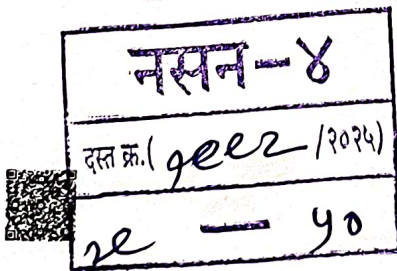 नसन-४
दस्त क्र.( १९९२ /२०२५)
२९ — ५०